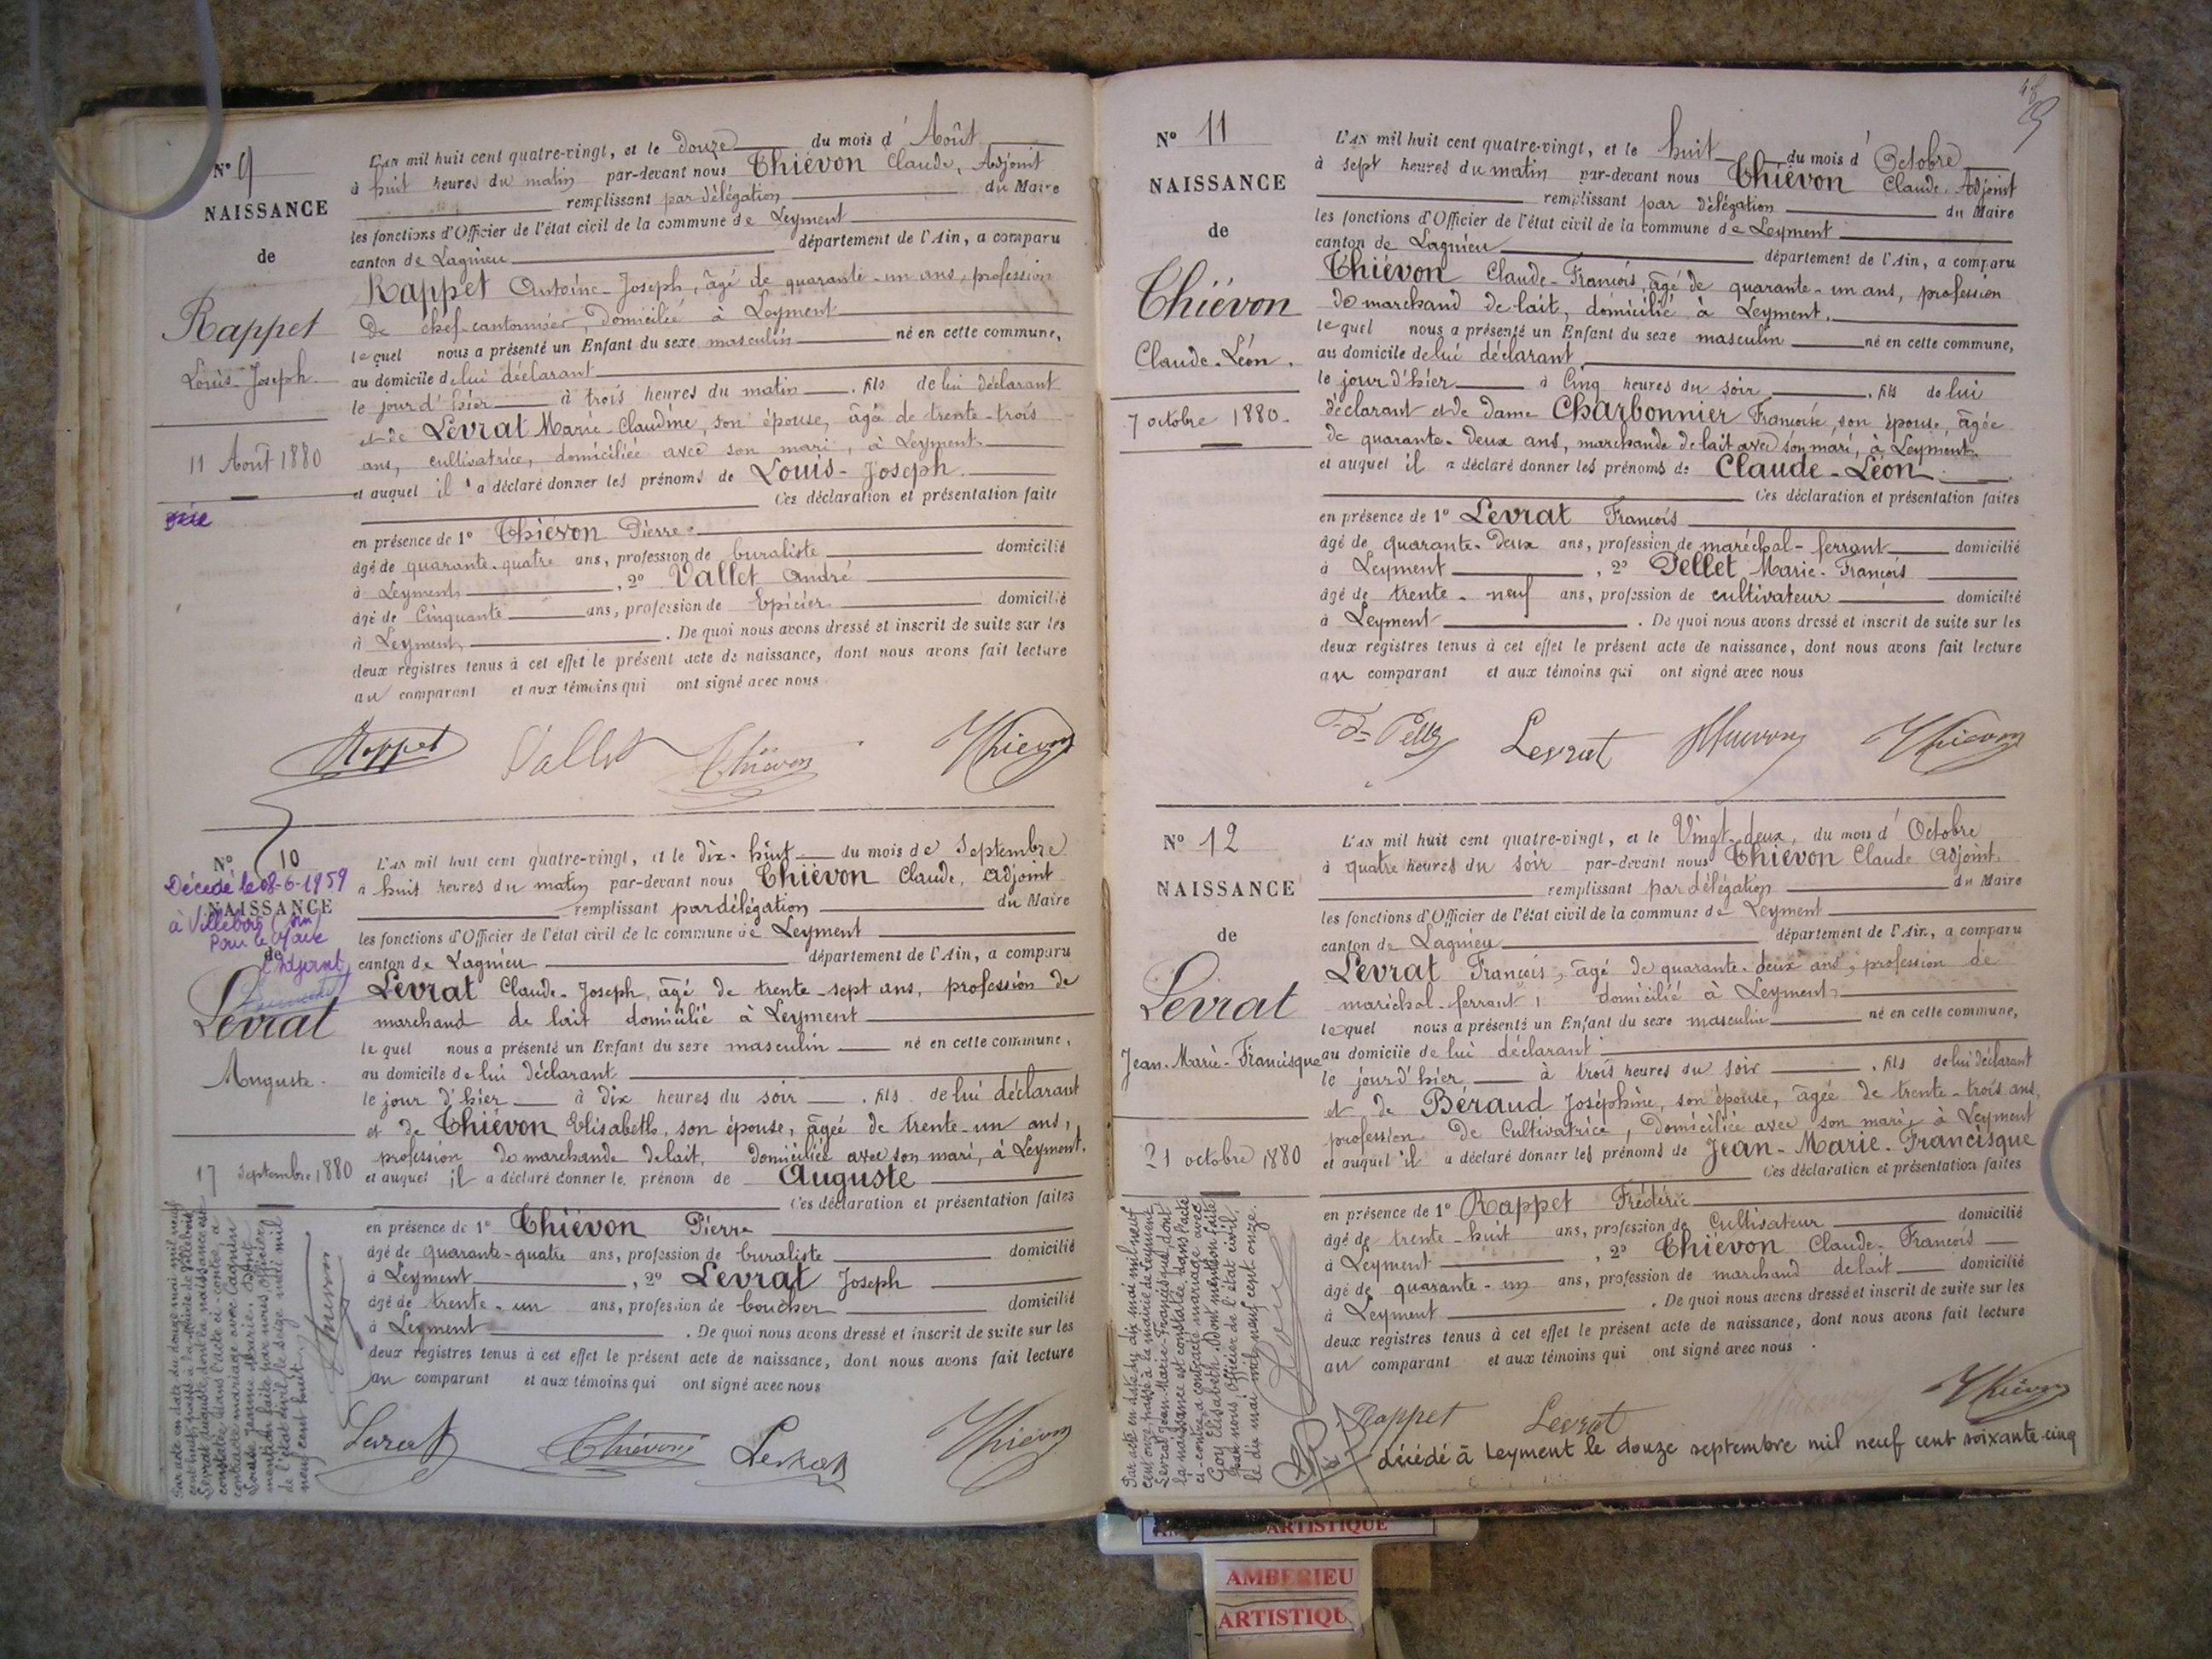 N° 9
NAISSANCE
de
Rappet
Louis-Joseph.
11 Août 1880
L'AN mil huit cent quatre-vingt, et le douze du mois d'Août
à huit heures du matin par-devant nous Thiévon Claude, Adjoint
remplissant par délégation du Maire
les fonctions d'Officier de l'état civil de la commune de Leyment
canton de Lagnieu département de l'Ain, a comparu
Rappet Antoine-Joseph, âgé de quarante-un ans, profession
de chef-cantonnier, domicilié à Leyment
lequel nous a présenté un Enfant du sexe masculin né en cette commune,
au domicile de lui déclarant
le jour d'hier à trois heures du matin, fils de lui déclarant
et de Levrat Marie-Claudine, son épouse, âgée de trente-trois
ans, cultivatrice, domiciliée avec son mari, à Leyment.
et auquel il a déclaré donner les prénoms de Louis-Joseph.
Ces déclaration et présentation faite
en présence de 1° Thiévon Pierre
âgé de quarante-quatre ans, profession de buraliste domicilié
à Leyment, 2° Vallet André
âgé de Cinquante ans, profession de Epicier domicilié
à Leyment. De quoi nous avons dressé et inscrit de suite sur les
deux registres tenus à cet effet le présent acte de naissance, dont nous avons fait lecture
au comparant et aux témoins qui ont signé avec nous
Rappet Vallet Thiévon Thiévon
N° 10
Décédé le 08-6-1959
NAISSANCE
à Villebois (Ain)
Pour le Maire
de
l'Adjoint
Levrat
Auguste.
17 septembre 1880
L'AN mil huit cent quatre-vingt, et le dix-huit du mois de Septembre
à huit heures du matin par-devant nous Thiévon Claude, Adjoint
remplissant par délégation du Maire
les fonctions d'Officier de l'état civil de la commune de Leyment
canton de Lagnieu département de l'Ain, a comparu
Levrat Claude-Joseph, âgé de trente-sept ans, profession de
marchand de lait domicilié à Leyment
lequel nous a présenté un Enfant du sexe masculin né en cette commune,
au domicile de lui déclarant
le jour d'hier à dix heures du soir, fils de lui déclarant
et de Thiévon Elisabeth, son épouse, âgée de trente-un ans,
profession de marchande de lait, domiciliée avec son mari, à Leyment.
et auquel il a déclaré donner le prénom de Auguste
Ces déclaration et présentation faites
en présence de 1° Thiévon Pierre
âgé de quarante-quatre ans, profession de buraliste domicilié
à Leyment, 2° Levrat Joseph
âgé de trente-un ans, profession de boucher domicilié
à Leyment. De quoi nous avons dressé et inscrit de suite sur les
deux registres tenus à cet effet le présent acte de naissance, dont nous avons fait lecture
au comparant et aux témoins qui ont signé avec nous
Par acte en date du douze mai mil neuf
cent huit, passé à la Mairie de Villebois
Levrat Auguste, dont la naissance est
constatée dans l'acte ci-contre, a
contracté mariage avec Cagnin
Louise Jeanne Marie. Dont
mention faite par nous, Officier
de l'état civil, le seize mai mil
neuf cent huit.
Thievon
Levrat Thiévon Levrat Thiévon
N° 11
NAISSANCE
de
Thiévon
Claude-Léon.
7 octobre 1880.
L'AN mil huit cent quatre-vingt, et le huit du mois d'Octobre
à sept heures du matin par-devant nous Thiévon Claude, Adjoint
remplissant par délégation du Maire
les fonctions d'Officier de l'état civil de la commune de Leyment
canton de Lagnieu département de l'Ain, a comparu
Thiévon Claude-François, âgé de quarante-un ans, profession
de marchand de lait, domicilié à Leyment.
lequel nous a présenté un Enfant du sexe masculin né en cette commune,
au domicile de lui déclarant
le jour d'hier à Cinq heures du soir, fils de lui
déclarant et de Dame Charbonnier Françoise, son épouse, âgée
de quarante-deux ans, marchande de lait avec son mari, à Leyment.
et auquel il a déclaré donner les prénoms de Claude-Léon.
Ces déclaration et présentation faites
en présence de 1° Levrat François
âgé de quarante-deux ans, profession de maréchal-ferrant domicilié
à Leyment, 2° Pellet Marie-François
âgé de trente-neuf ans, profession de cultivateur domicilié
à Leyment. De quoi nous avons dressé et inscrit de suite sur les
deux registres tenus à cet effet le présent acte de naissance, dont nous avons fait lecture
au comparant et aux témoins qui ont signé avec nous
Levrat Thiévon
N° 12
NAISSANCE
de
Levrat
Jean-Marie-Francisque
21 octobre 1880
L'AN mil huit cent quatre-vingt, et le Vingt-deux, du mois d'Octobre
à quatre heures du soir par-devant nous Thiévon Claude Adjoint.
remplissant par délégation du Maire
les fonctions d'Officier de l'état civil de la commune de Leyment
canton de Lagnieu département de l'Ain, a comparu
Levrat François, âgé de quarante-deux ans, profession de
maréchal-ferrant, domicilié à Leyment
lequel nous a présenté un Enfant du sexe masculin né en cette commune,
au domicile de lui déclarant
le jour d'hier à trois heures du soir, fils de lui déclarant
et de Béraud Joséphine, son épouse, âgée de trente-trois ans,
profession de Cultivatrice, domiciliée avec son mari, à Leyment
et auquel il a déclaré donner les prénoms de Jean-Marie-Francisque
Ces déclaration et présentation faites
en présence de 1° Rappet Frédéric
âgé de trente-huit ans, profession de Cultivateur domicilié
à Leyment, 2° Thiévon Claude-François
âgé de quarante-un ans, profession de marchand de lait domicilié
à Leyment. De quoi nous avons dressé et inscrit de suite sur les
deux registres tenus à cet effet le présent acte de naissance, dont nous avons fait lecture
au comparant et aux témoins qui ont signé avec nous.
Par acte en date du dix mai mil neuf
cent onze, passé à la mairie de Leyment
Levrat Jean-Marie-Francisque, dont
la naissance est constatée dans l'acte
ci-contre, a contracté mariage avec
Goy Elisabeth. Dont mention faite
par nous, Officier de l'état civil,
le dix mai mil neuf cent onze.
Rappet Levrat Thiévon
décédé à Leyment le douze septembre mil neuf cent soixante-cinq
ARTISTIQUE
AMBERIEU
ARTISTIQU